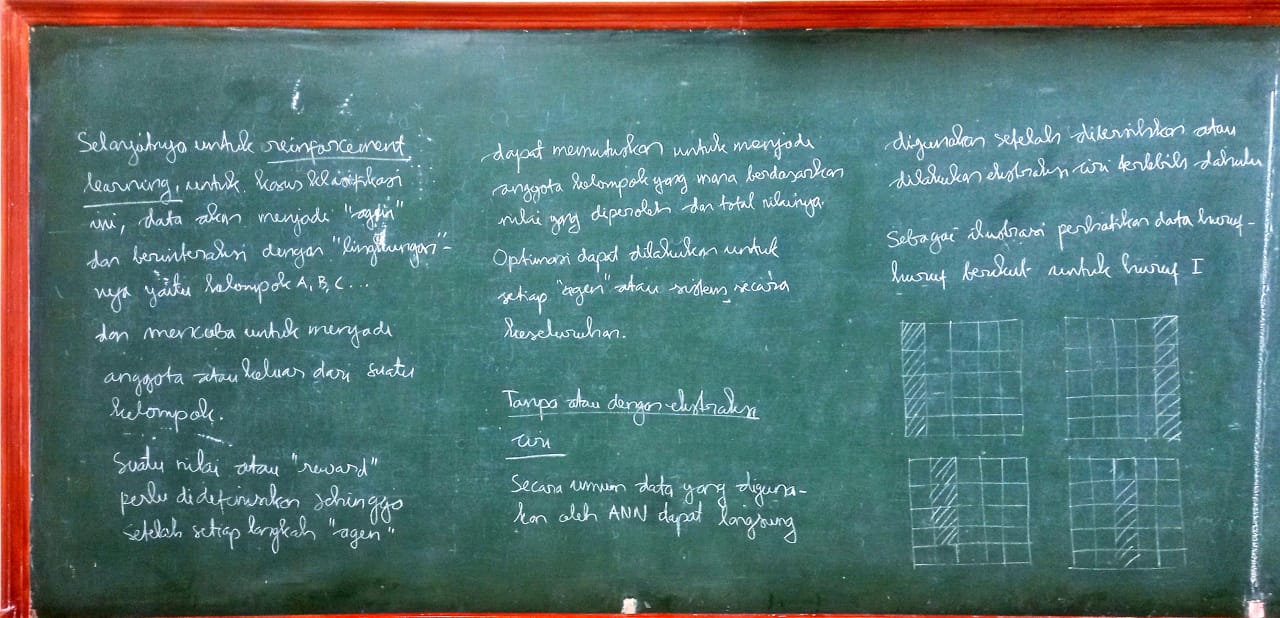 Selanjutnya untuk reinforcement
learning, untuk kasus klasifikasi
ini, data akan menjadi "agen"
dan berinteraksi dengan "lingkungan"-
nya yaitu kelompok A, B, C ...
dan mencoba untuk menjadi
anggota atau keluar dari suatu
kelompok.
Suatu nilai atau "reward"
perlu didefinisikan sehingga
setelah setiap langkah "agen"
dapat memutuskan untuk menjadi
anggota kelompok yang mana berdasarkan
nilai yang diperoleh dan total nilainya.
Optimasi dapat dilakukan untuk
setiap "agen" atau sistem secara
keseluruhan.
Tanpa atau dengan ekstraksi
ciri
Secara umum data yang diguna-
kan oleh ANN dapat langsung
digunakan setelah dibersihkan atau
dilakukan ekstraksi ciri terlebih dahulu
Sebagai ilustrasi perhatikan data huruf-
huruf berikut untuk huruf I